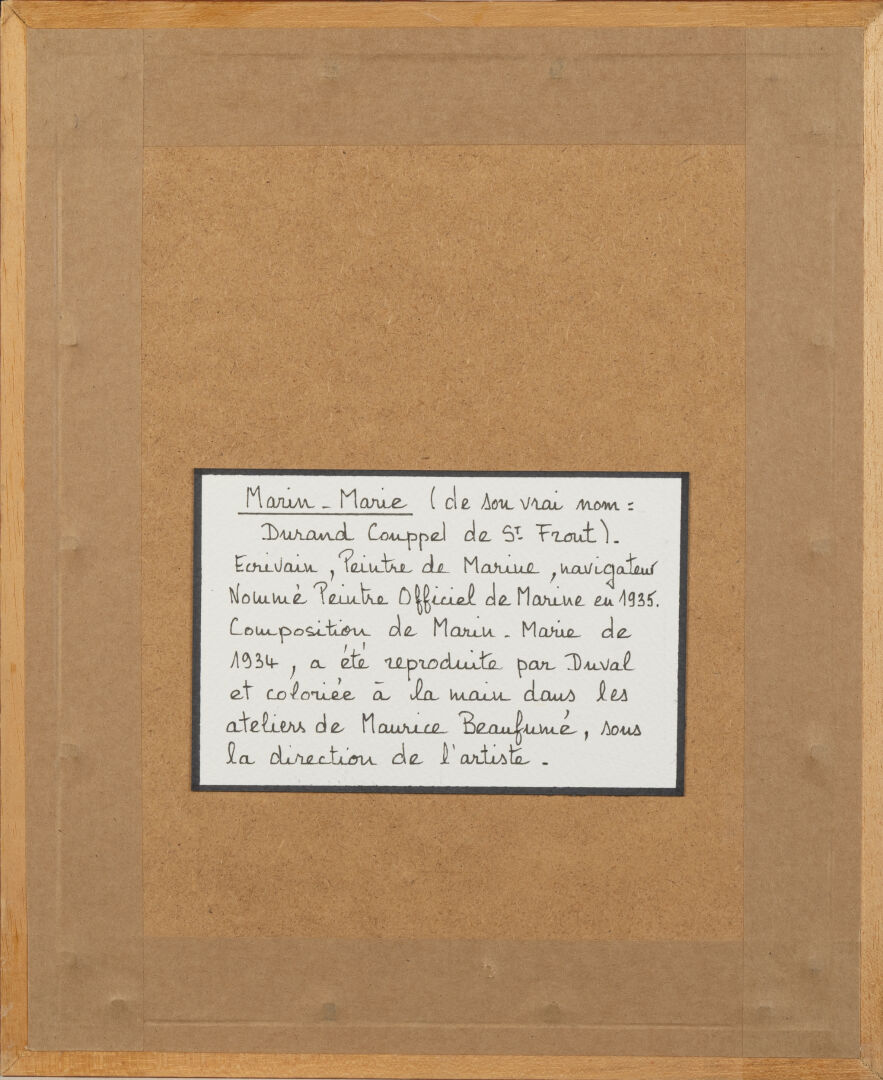 Marin - Marie (de son vrai nom :
Durand Couppel de St Frout).
Ecrivain, Peintre de Marine, navigateur
Nommé Peintre Officiel de Marine en 1935.
Composition de Marin - Marie de
1934, a été reproduite par Duval
et coloriée à la main dans les
ateliers de Maurice Beaufumé, sous
la direction de l'artiste.